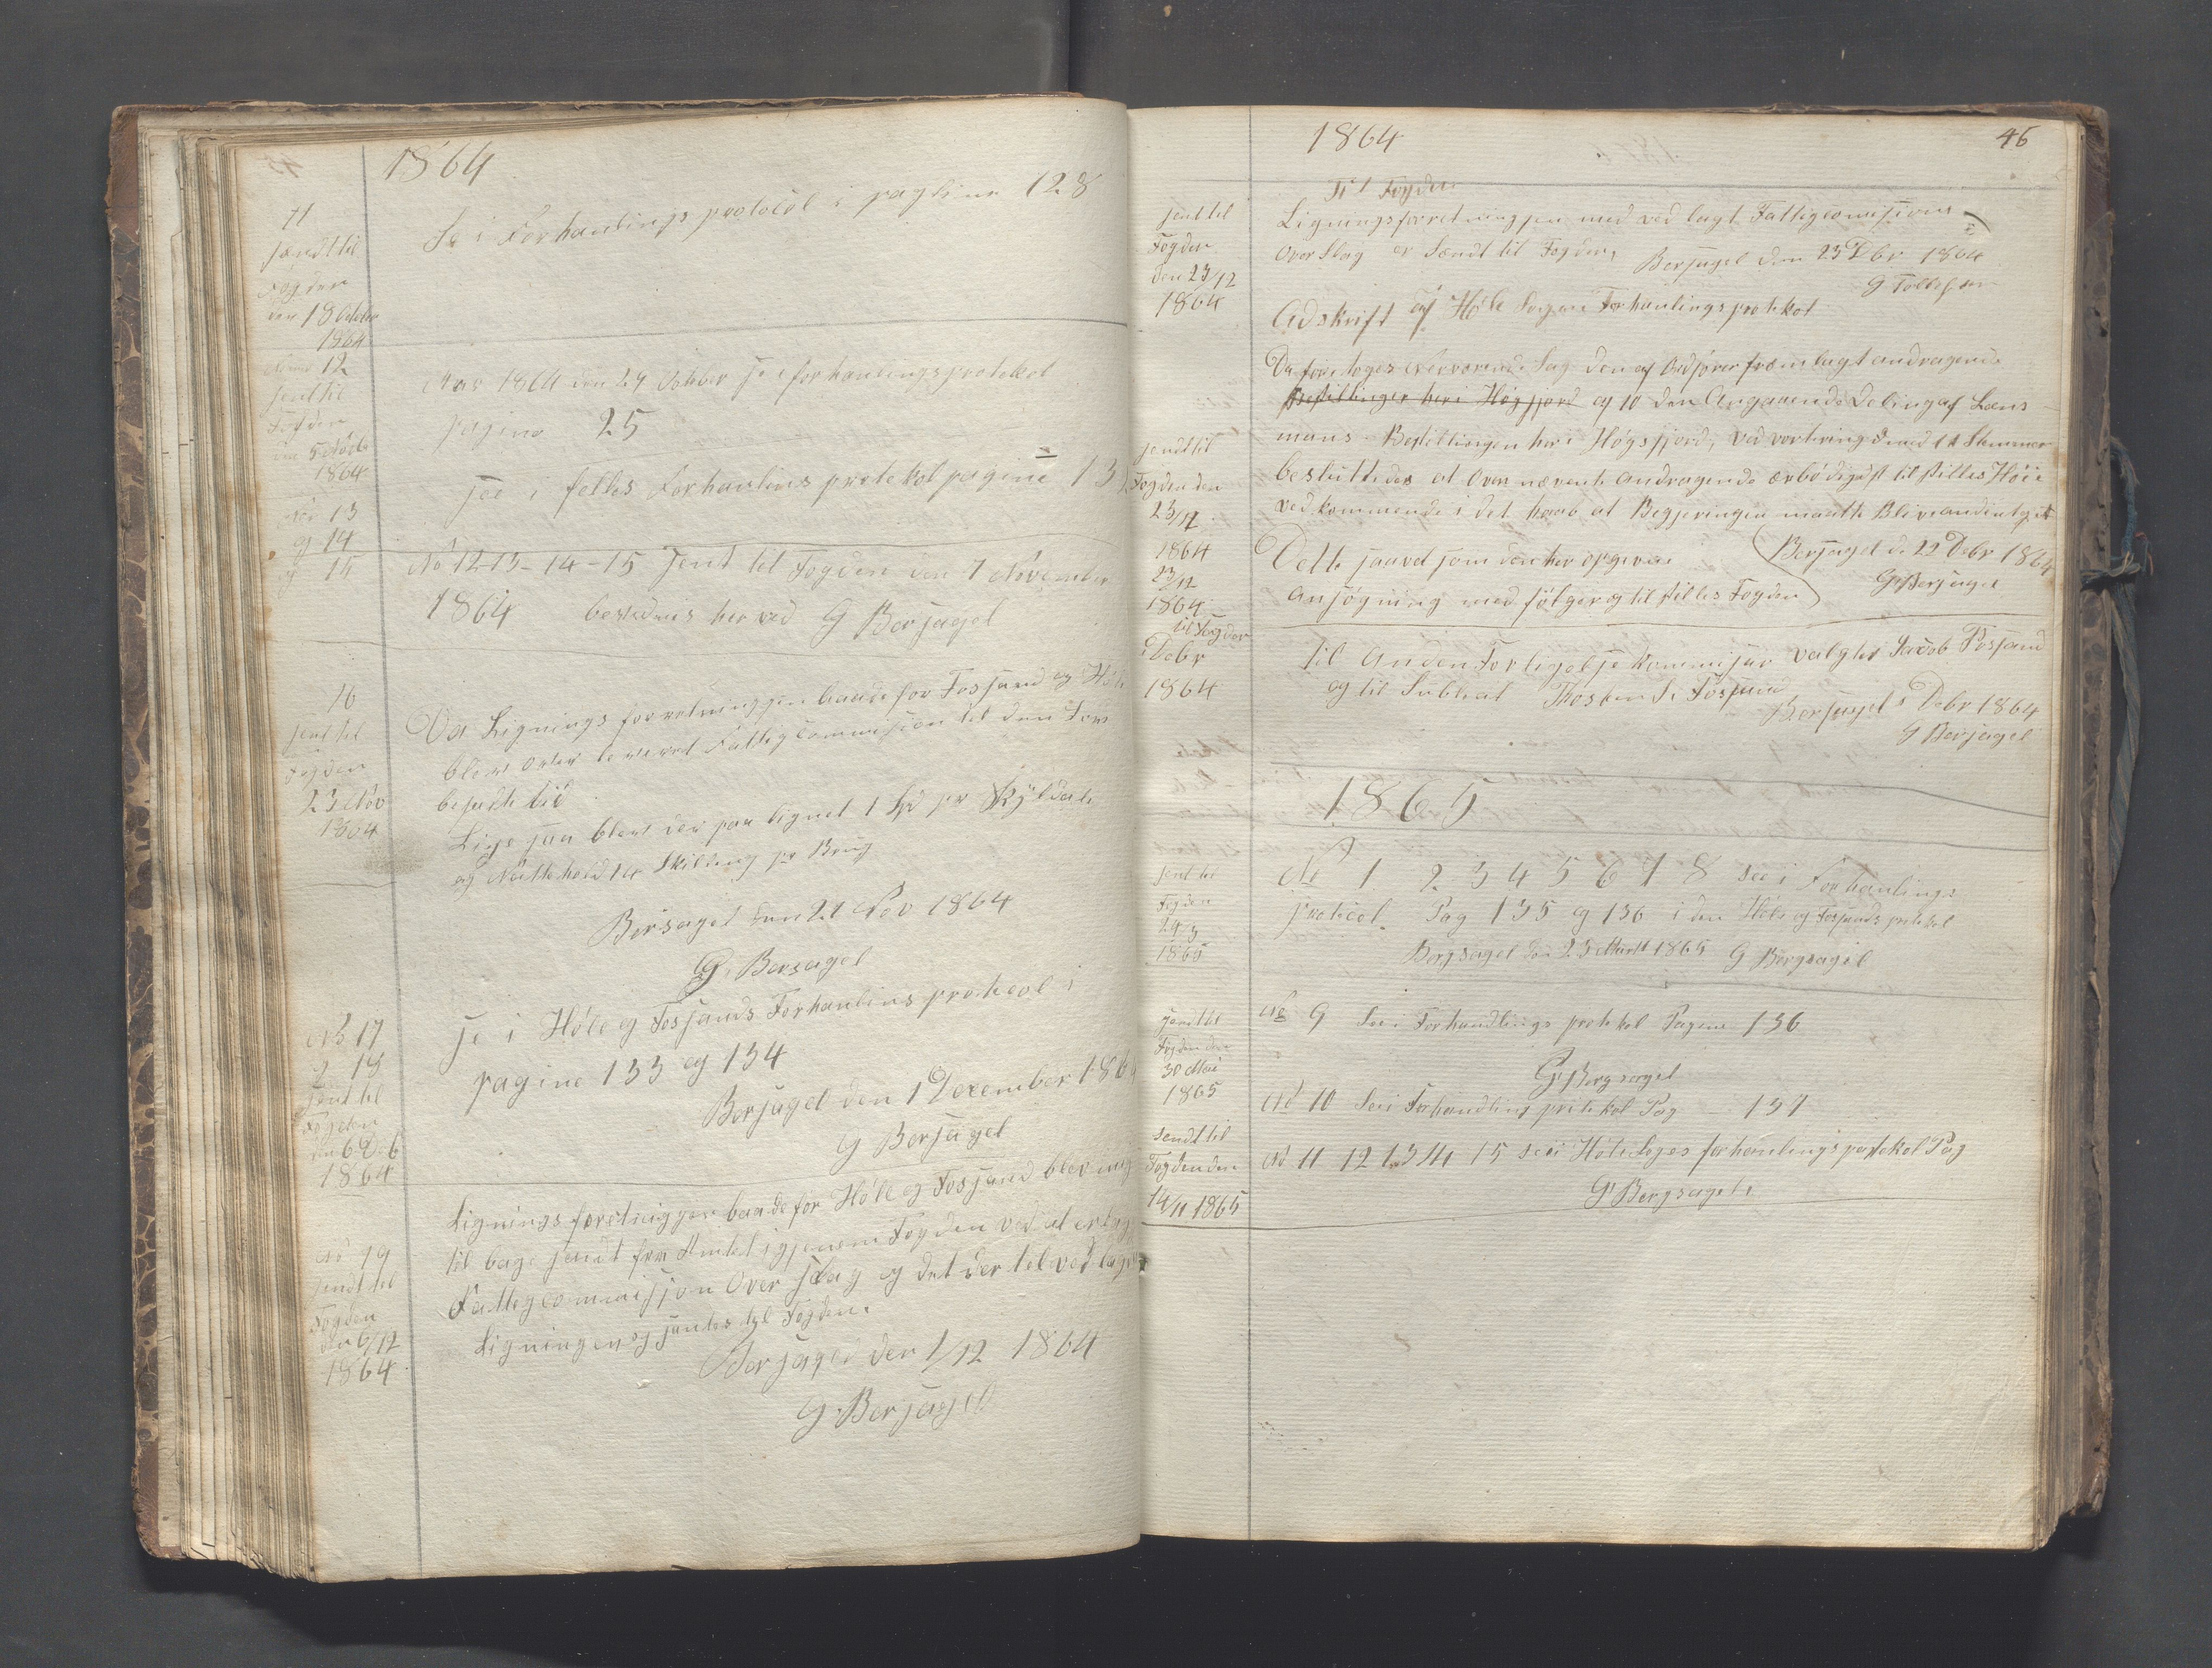 1864
11
sendt til
Fogden
den 18 October
1864
Se i Forhanlings protocol i pagline 128
12
sent til
Fogden
den 5 Novb
1864
Aar 1864 den 29 October se i forhanlingsprotokol
pagina 25
No 13
og 14
og 15
see i felles Forhanlins protokol pagine 13
No 12-13-14-15 sent til Fogden den 7 November
1864 bevidnes her ved G Bersagel
16
sent til
Fogden
23 Nov
1864
Da Lignings forretninggen baade for Fossand og Höle
blev over leveret Fattigcommision til den Fors
besudte tid
Lige saa blev der paa lignet 1 Spd pr Skyldal
og Nattehold 14 Skilling pr Brug
Bersagel den 21 Nov 1864
G. Bersagel
No 17
og 18
sent til
Fogden
den 6 D.b
1864
se i Höle og Fossands Forhanlins protocol i
pagine 133 og 134
Bersagel den 1 December 1864
G Bersagel
No 19
sendt til
Fogden
den 6/12
1864
Lignings foretnigger baade for Höle og Fossand blev
til bage sendt fra Amtet igjenem Fogden ved at
Fattigcommisjon Over Slag og det der til ved lagt
Ligningen og sentes til Fogden.
Bersagel den 1/12 1864
G. Bersagel
1864
46
sent til
Fogden
den 23/12
1864
Til Fogden
Ligningsforretninggen med ved lagt Fattigcomisions
Over Slag er Sendt til Fogden, Bersagel den 23 Dbr 1864
G Tollefsen
Adskrift af Höle Sogns Forhanlingsprotokol
sendt til
Fogden den
23/12
1864
23/12
1864
til Fogden
Debr
1864
Da foretoges Nerværende Sag den af Ordförer fræmlagt andragende
Bestillinger her i Högsfjord af 10 den Angaaende Deling af Læns
mans Bestillingen her i Högsfjord, ved vortering med 11 Stemmer
besluttedes at Oven nævnte andragende ærbödigst til stilles Höie
vedkommende i det haab at Begjeringen maatte Blive andentget
Dette saavel som den her opgivne
ansögning medfölger og til stilles Fogden
Bersagel d. 22 Debr 1864
G Bersagel
Til Anden Forligelse kommisær valgtes Jacob Fossand
og til Subleat Thosten S. Fossand
Bersagel Debr 1864
G Bersagel
1865
sent til
Fogden
24/3
1865
No 1 2 3 4 5 6 7 8 see i Forhanlings
protocol. Pag 135 og 136 i den Höle og Fossands protokol
Bergsagel den 23 Marts 1865 G Bergsagel
sendt til
Fogden den
30 Mai
1865
No 9 See i Forhandlings protokol Pagina 136
G. Bergsagel
No 10 See i Forhandling protokol Pag 137
sendt til
Fogden den
14/11 1865
No 11 12 13 14 15 see i Höle Soges forhanlings protokol Pag
G. Bergsagel.